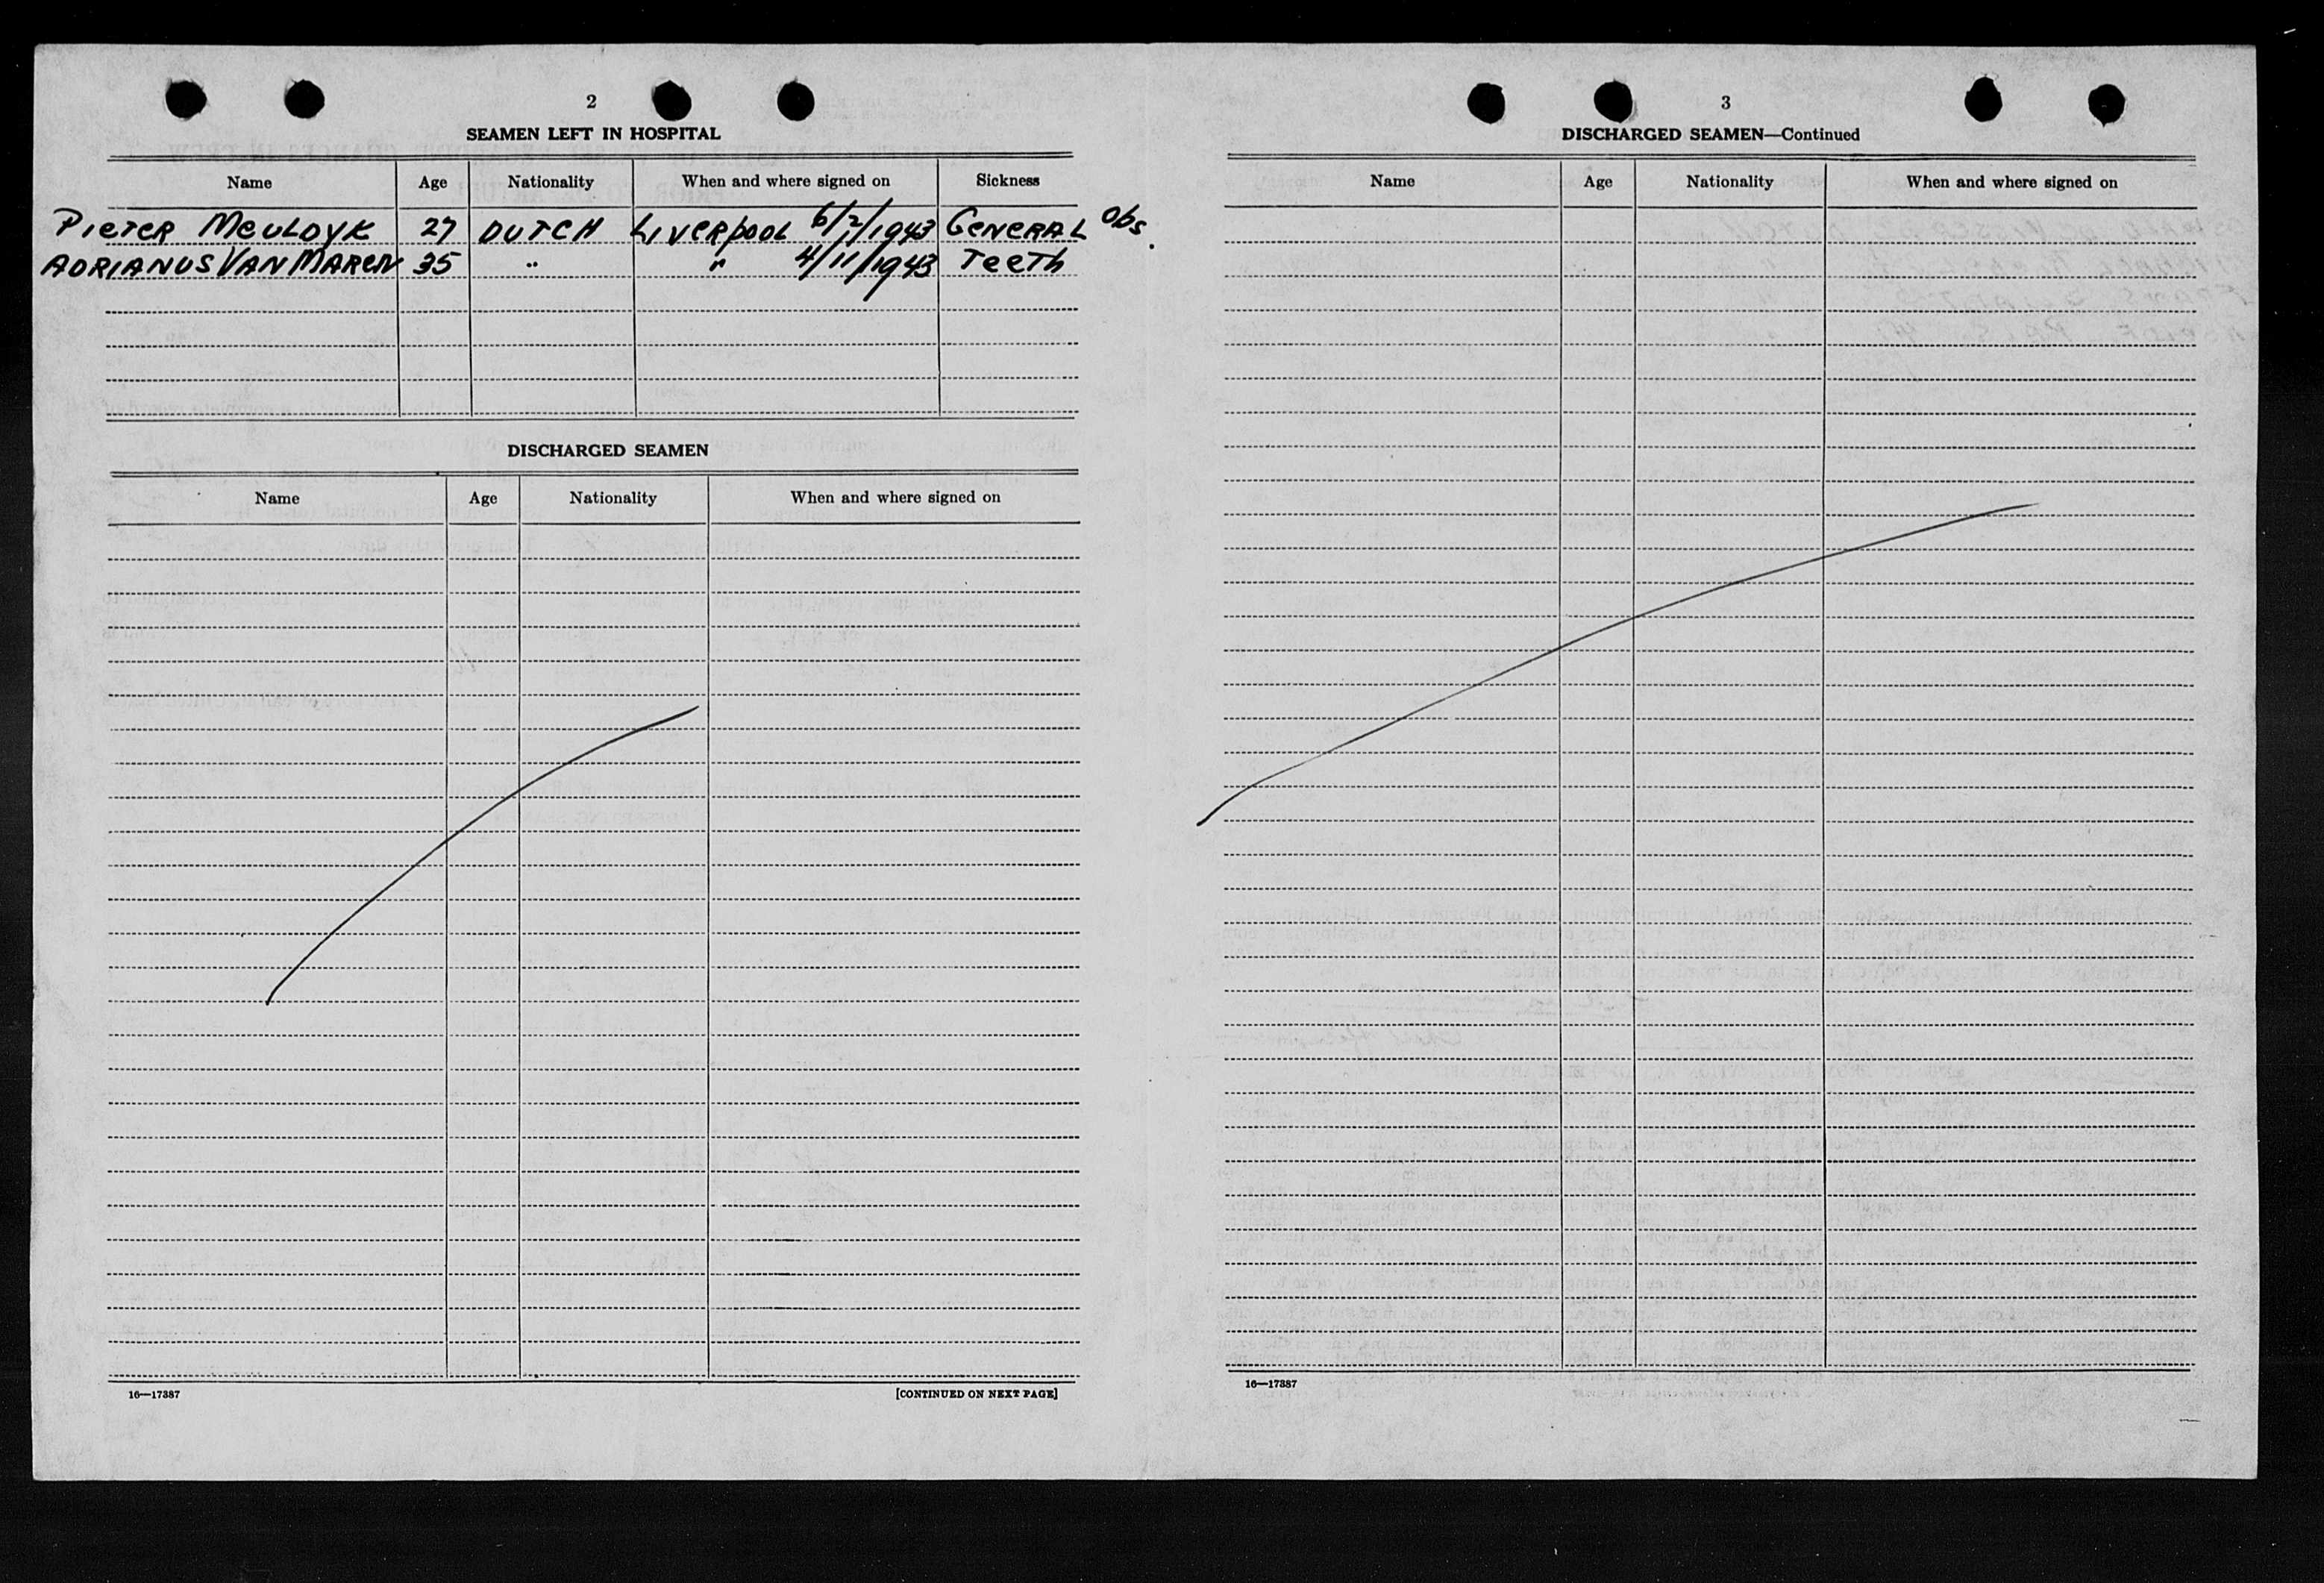 2
SEAMEN LEFT IN HOSPITAL
Name Age Nationality When and where signed on Sickness
PIETER MEULDYK 27 DUTCH LIVERPOOL 6/2/1943 GENERAL Obs.
ADRIANUS VAN MAREN 35 " " 4/11/1943 TEETH
DISCHARGED SEAMEN
Name Age Nationality When and where signed on
16—17387 [CONTINUED ON NEXT PAGE]
3
DISCHARGED SEAMEN—Continued
Name Age Nationality When and where signed on
16—17387